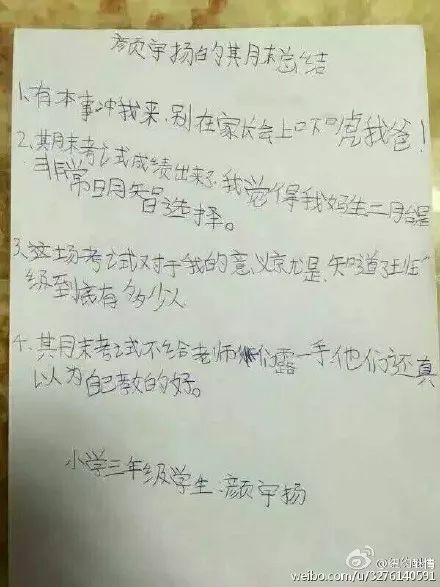 颜宇扬的期末总结
1.有本事冲我来,别在家长会上吓唬我爸!
2.期末考试成绩出来了,我觉得我妈生二胎是
非常明智选择。
3.这场考试对于我的意义就是,知道了班
级到底有多少人
4.期末考试不给老师们露一手,他们还真
以为自己教的好。
小学三年级学生.颜宇扬
weibo.com/u/3276140591